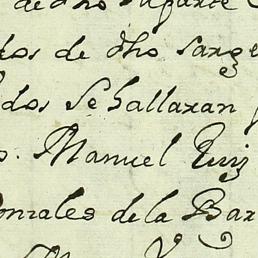 de dho
dos de dho Sarge
dos Se hallaran
Manuel Ruiz
Gonzales de la Bar